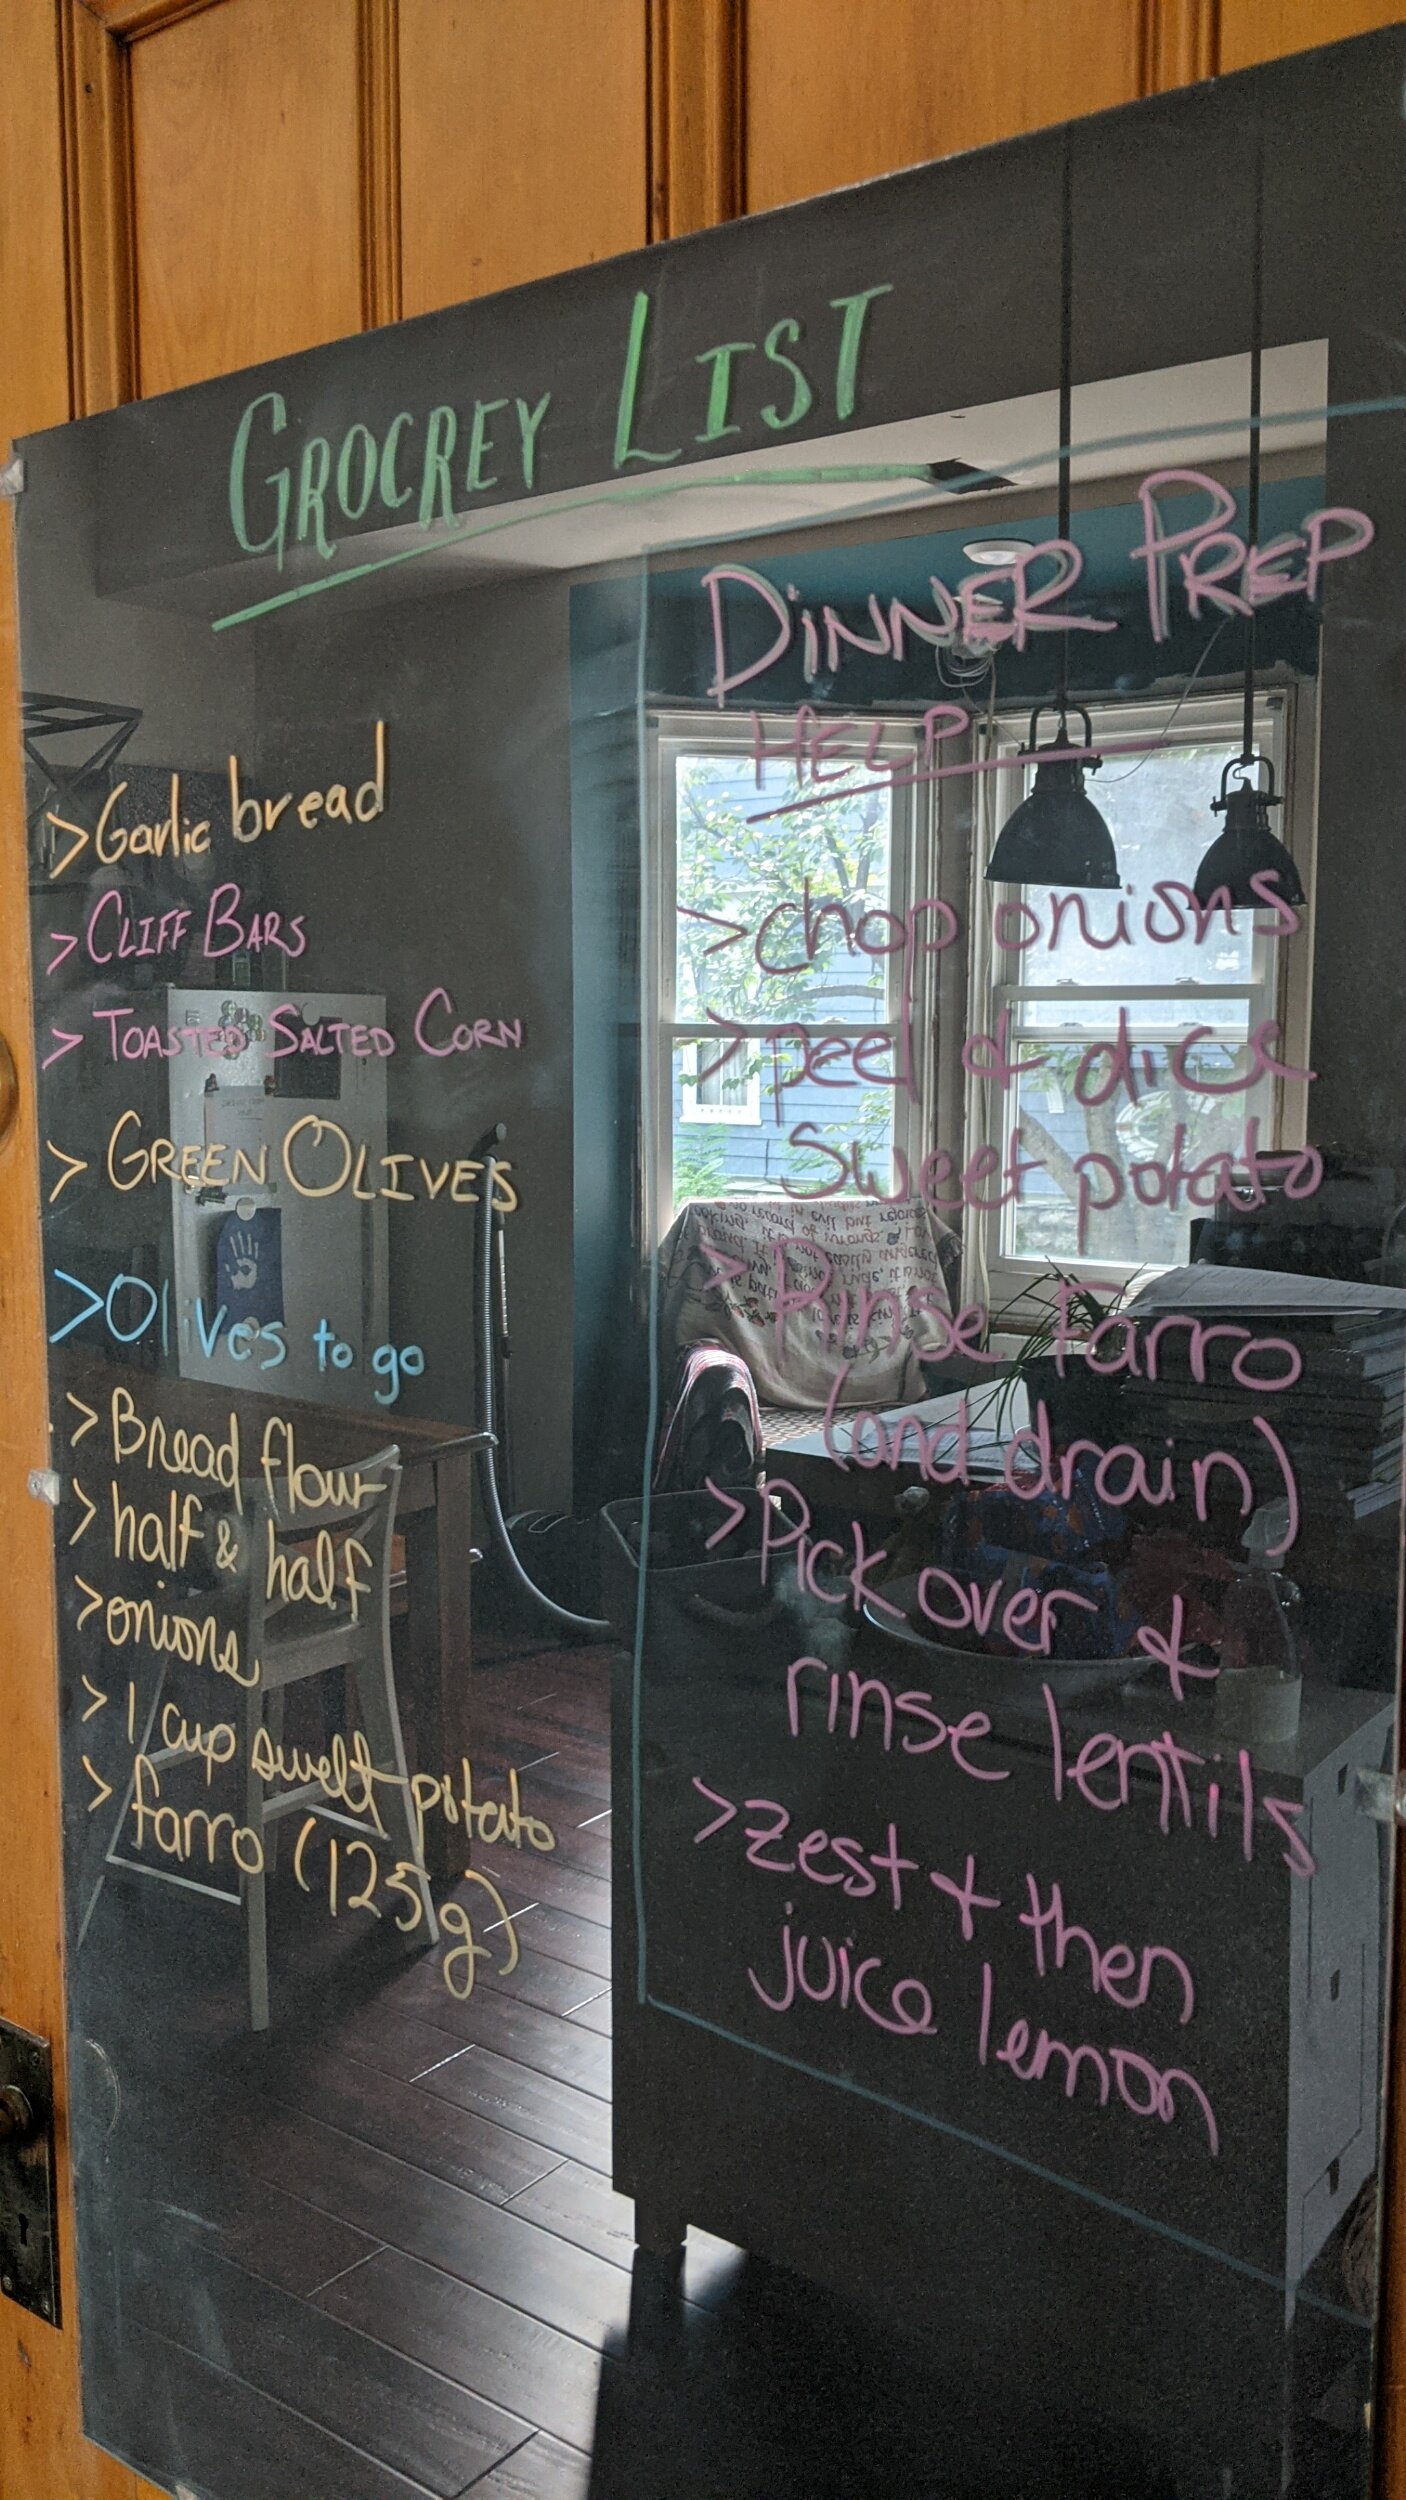 GROCREY LIST
> Garlic bread
> CLIFF BARS
> TOASTED SALTED CORN
> GREEN OLIVES
> Olives to go
> Bread flour
> half & half
> onions
> 1 cup sweet potato
> farro (125g)
DINNER PREP
HELP
> chop onions
> peel & dice
sweet potato
> Rinse Farro
(and drain)
> Pick over &
rinse lentils
> zest & then
juice lemon